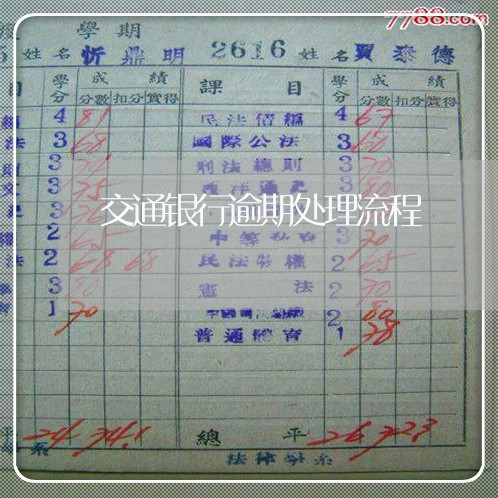 7788.com
學期
姓名 忻鼎明 2616 姓名 賈泰德
目 學分 成績 課目 學分 成績
分數 扣分 實得 分數 扣分 實得
4 81 民法債編 4 67
法 3 68 國際公法 3 60
3 刑法總則 3 70
3 75 西洋通史 3 80
交通银行逾期处理流程
2 65 3 70
法 2 68 68 民法物權 2 65
3 80 憲法 2 70
1 70 2 80
普通體育 1 78
平 24 74.1 總平 26 72.3
系 法律學系